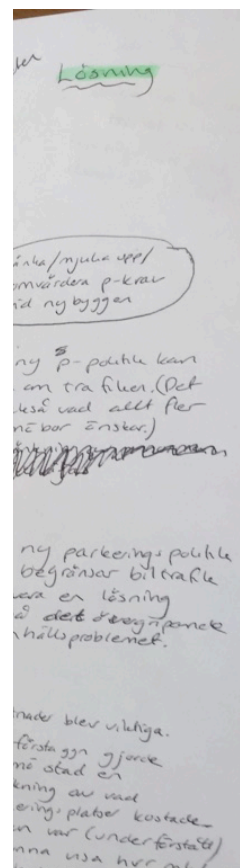 Lösning
änka/mjuka upp/
omvärdera p-krav
vid nybyggen
ny p-politik kan
om trafiken. (Det
också vad allt fler
mö bor önskar.)
ny parkeringspolitik
begränsar biltrafik
vara en lösning
på det övergripande
hällsproblemet.
tnader blev viktiga.
första ggn gjorde
mö stad en
kning av vad
eringsplatser kostade
n var (underförstått)
nna visa hur